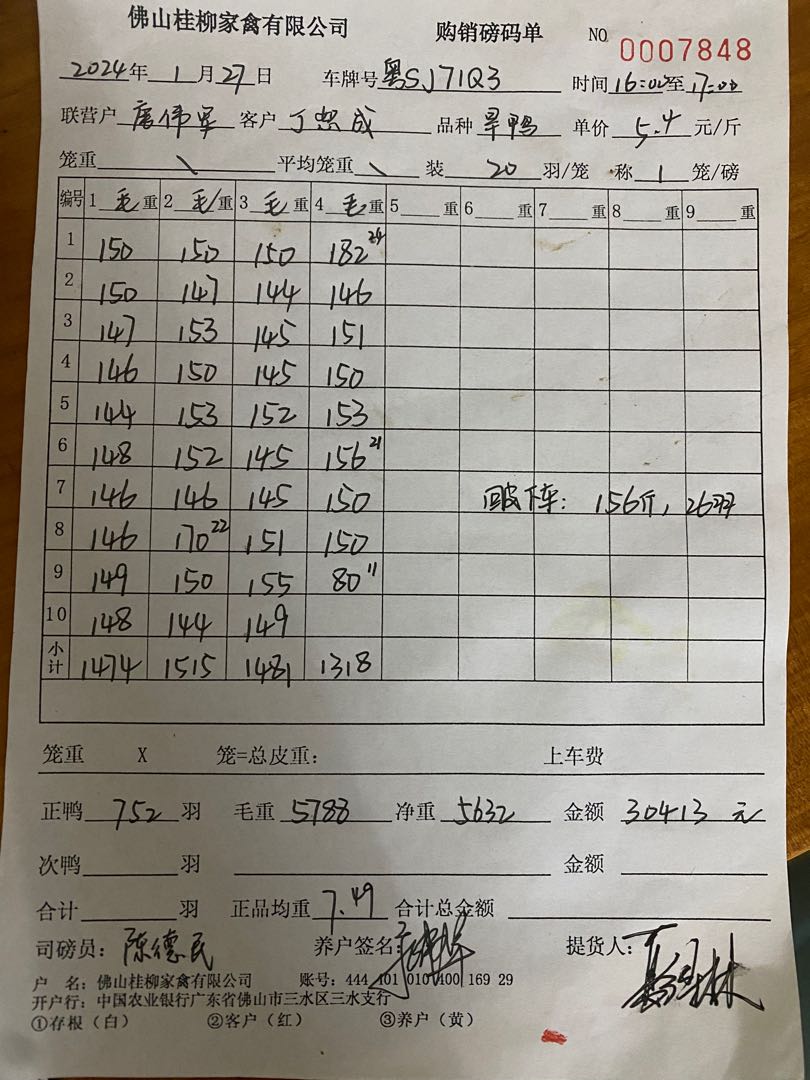 佛山桂柳家禽有限公司 购销磅码单 NO 0007848
2024年 1月27日 车牌号粤SJ71Q3 时间16:00至17:00
联营户 客户 丁 成 品种 旱鸭 单价 5.4 元/斤
笼重 \ 平均笼重 \ 装 20 羽/笼 称 1 笼/磅
编号 1 毛 重 2 毛 重 3 毛 重 4 毛 重 5 重 6 重 7 重 8 重 9 重
1 150 150 150 182 24
2 150 147 144 146
3 147 153 145 151
4 146 150 145 150
5 144 153 152 153
6 148 152 145 156 21
7 146 146 145 150 回皮下车: 156斤, 26羽
8 146 170 22 151 150
9 149 150 155 80 11
10 148 144 149
小计 1474 1515 1481 1318
笼重 X 笼=总皮重: 上车费
正鸭 752 羽 毛重 5788 净重 5632 金额 30413 元
次鸭 羽 金额
合计 羽 正品均重 7.49 合计总金额
司磅员: 陈德民 养户签名: 提货人:
户 名: 佛山桂柳家禽有限公司 账号: 444 401 010 400 169 29
开户行: 中国农业银行广东省佛山市三水区三水支行
①存根（白） ②客户（红） ③养户（黄）